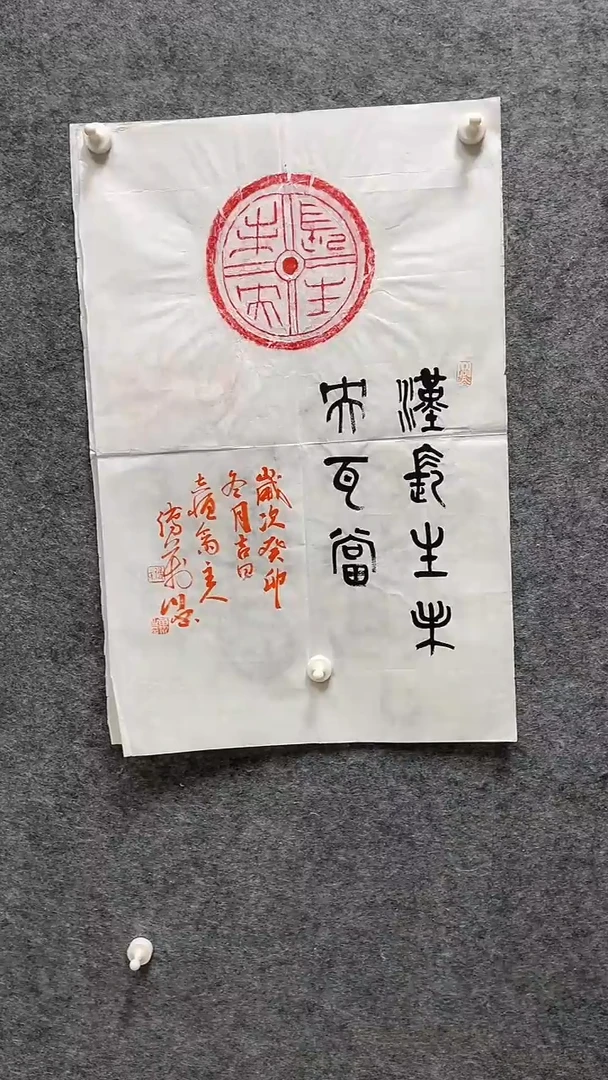 長生
未央
漢長生未
央瓦當
歲次癸卯
冬月吉日
主人